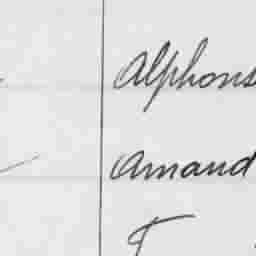 Alphons
Amand
T